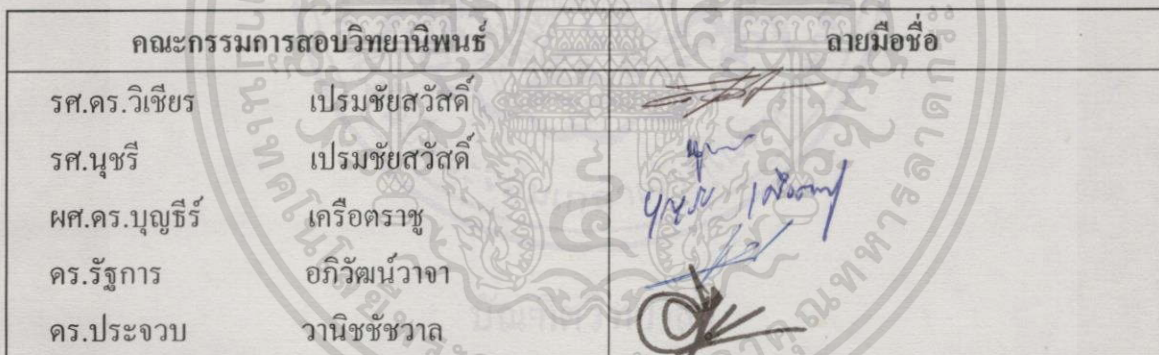 คณะกรรมการสอบวิทยานิพนธ์ ลายมือชื่อ
รศ.ดร.วิเชียร เปรมชัยสวัสดิ์
รศ.นุชรี เปรมชัยสวัสดิ์
ผศ.ดร.บุญธีร์ เครือตราชู
ดร.รัฐการ อภิวัฒน์วาจา
ดร.ประจวบ วานิชชัชวาล